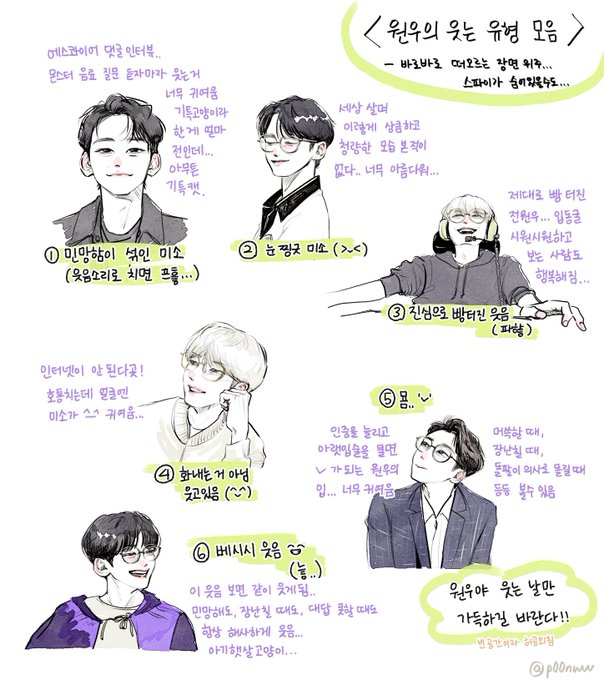 <원우의 웃는 유형 모음>
- 바로바로 떠오르는 장면 위주...
스파이가 숨어있을수도...
에스콰이어 댓글 인터뷰..
몬스터 음료 질문 듣자마자 웃는거
너무 귀여움
기특고양이라
한게 얼마
전인데...
아무튼
기특캣.
① 민망함이 섞인 미소
(웃음소리로 치면 흐흫...)
세상 살며
이렇게 상큼하고
청량한 모습 본적이
없다.. 너무 아름다워...
② 눈 찡긋 미소 (>.<)
제대로 빵 터진
전원우... 입동굴
시원시원하고
보는 사람도
행복해짐...
③ 진심으로 빵터진 웃음
(파핳)
인터넷이 안 된다곳!
호통치는데 얼굴엔
미소가 ^-^ 귀여움...
④ 화내는거 아님
웃고있음 (~~)
⑤ 몸..'ᨆ'
인중을 늘리고
아랫입술을 물면
ᨆ가 되는 원우의
입... 너무 귀여움
머쓱할 때,
장난칠 때,
돌팔이 의사로 몰릴 때
등등 볼수 있음
⑥ 베시시 웃음
(늫..)
이 웃음 보면 같이 웃게됨..
민망해도, 장난칠 때도, 대답 못할 때도
항상 해사하게 웃음...
아기햇살고양이...
원우야 웃는 날만
가득하길 바란다!!
빈 공간이라 허공외침
@p00nww